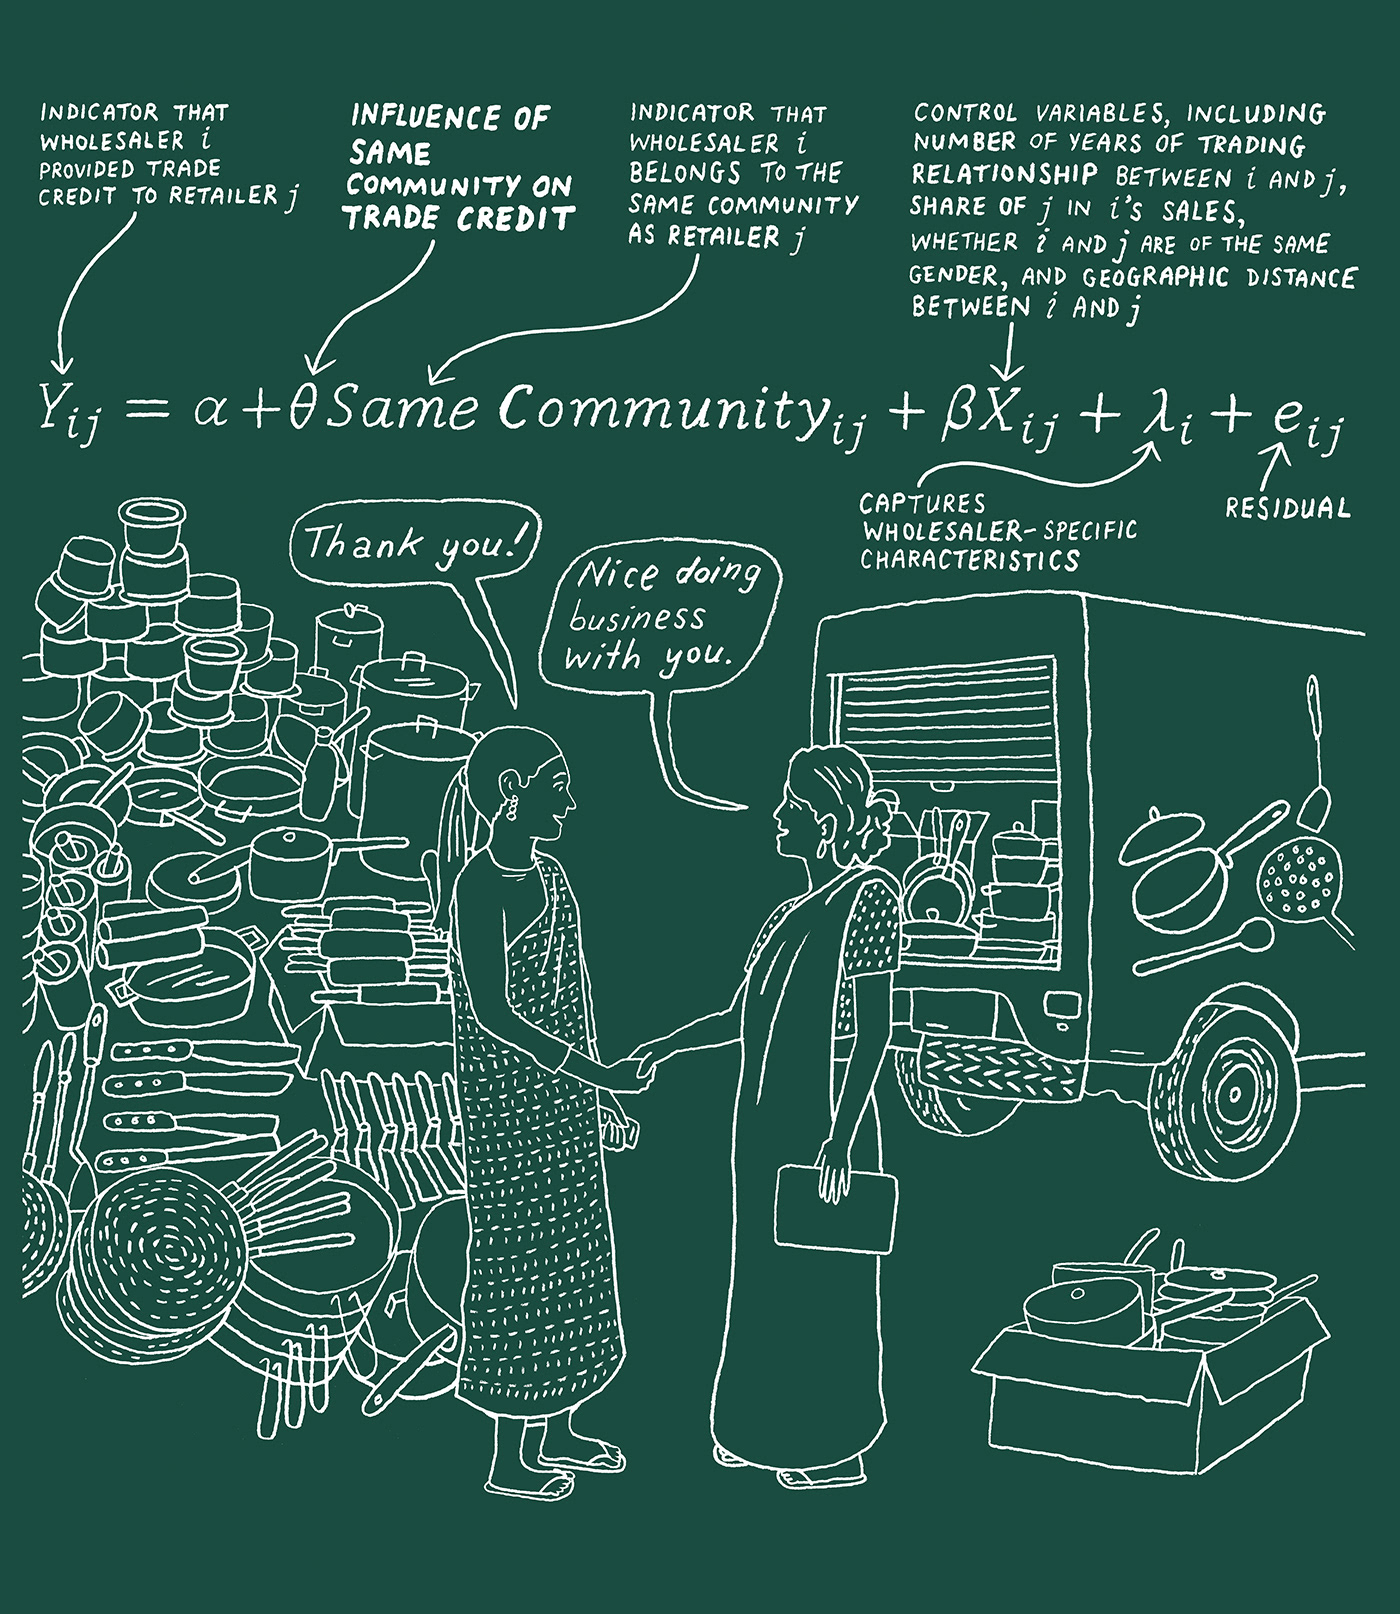 INDICATOR THAT
WHOLESALER i
PROVIDED TRADE
CREDIT TO RETAILER j
INFLUENCE OF
SAME
COMMUNITY ON
TRADE CREDIT
INDICATOR THAT
WHOLESALER i
BELONGS TO THE
SAME COMMUNITY
AS RETAILER j
CONTROL VARIABLES, INCLUDING
NUMBER OF YEARS OF TRADING
RELATIONSHIP BETWEEN i AND j,
SHARE OF j IN i'S SALES,
WHETHER i AND j ARE OF THE SAME
GENDER, AND GEOGRAPHIC DISTANCE
BETWEEN i AND j
Yij = α + θ Same Communityij + βXij + λi + eij
CAPTURES
WHOLESALER-SPECIFIC
CHARACTERISTICS
RESIDUAL
Thank you!
Nice doing
business
with you.